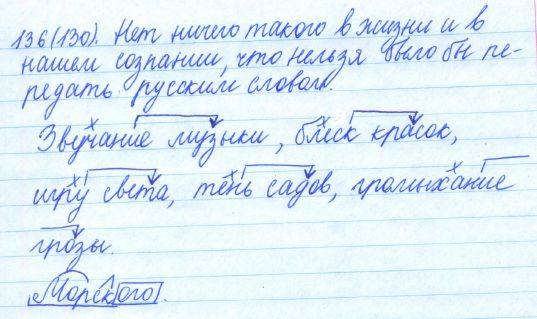 136(130). Нет ничего такого в жизни и в
нашем сознании, что нельзя было бы пе-
редать русским словом.
Звучание музыки, блеск красок,
игру света, тень садов, громыхание
грозы.
Морского.